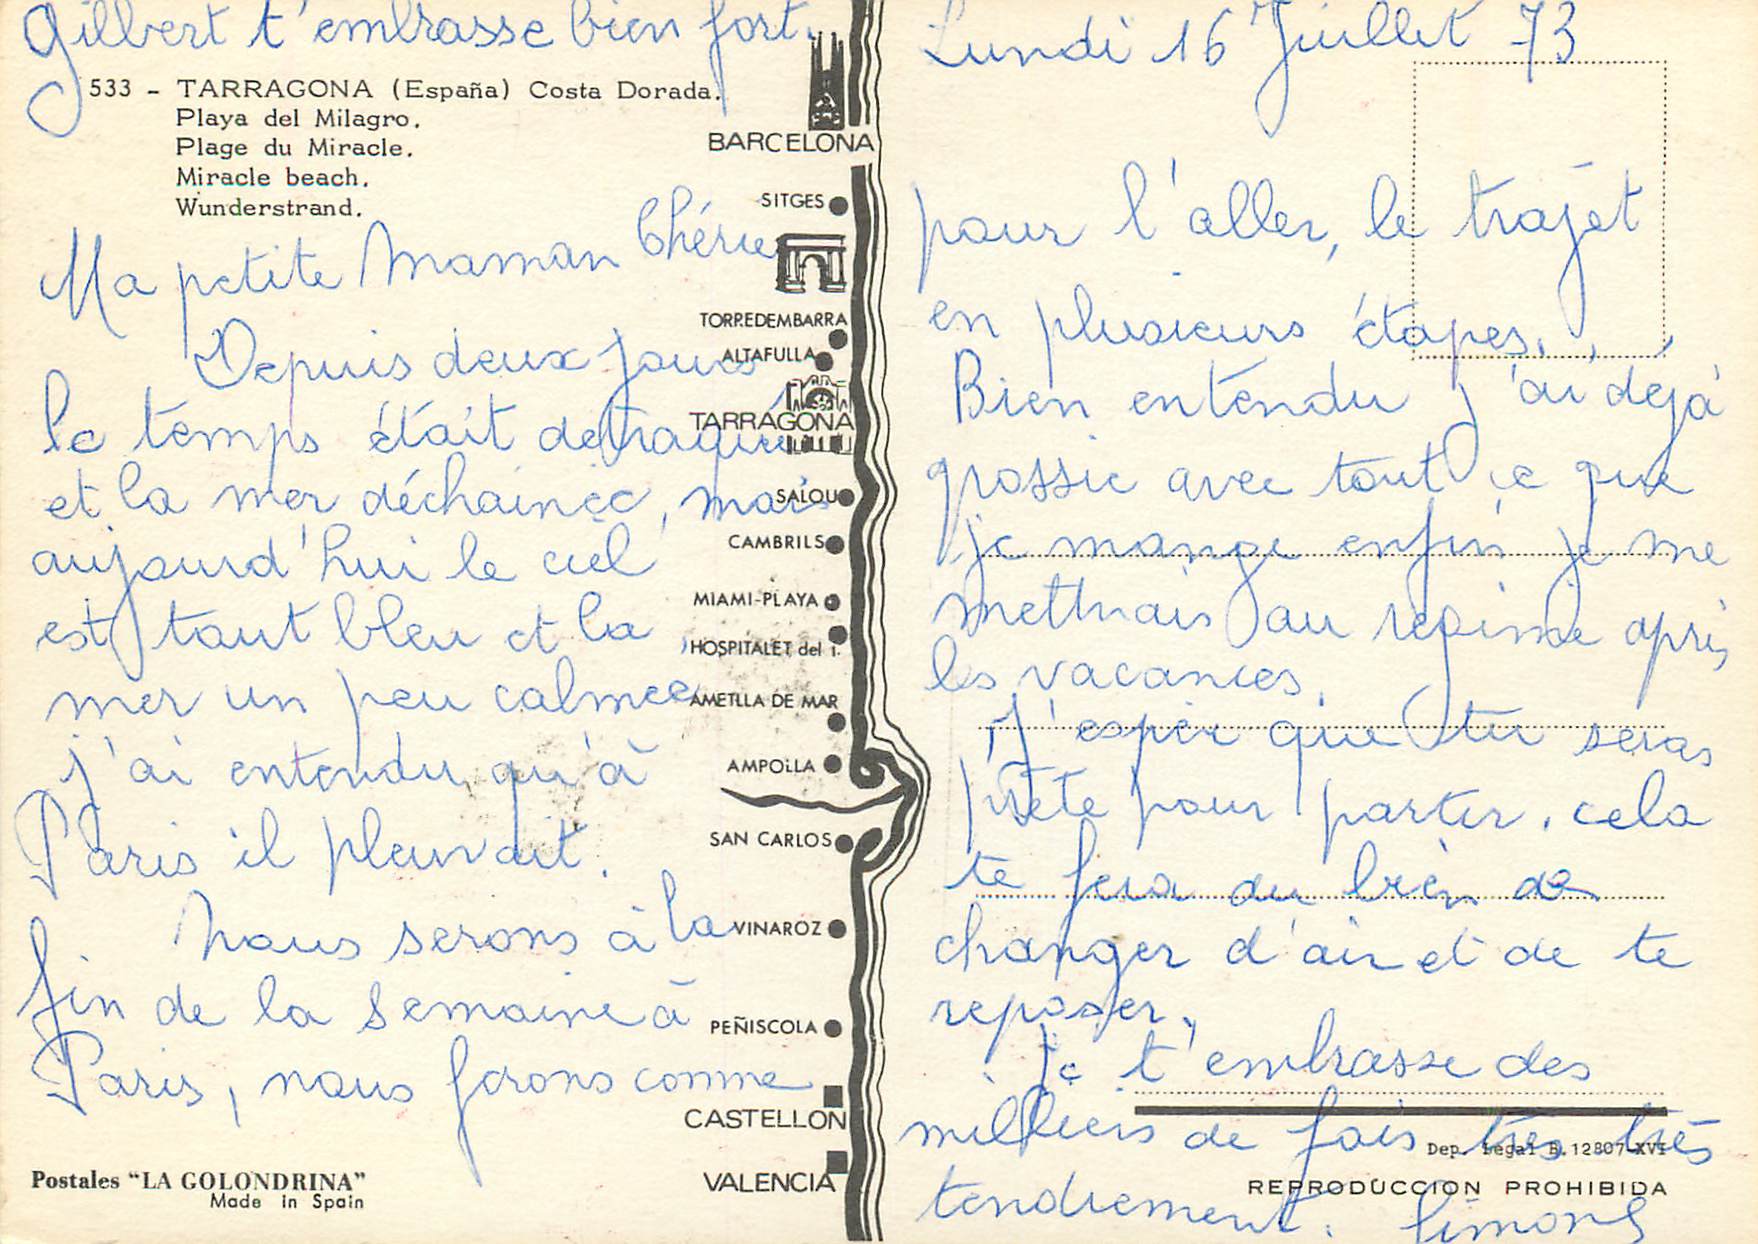 Gilbert t'embrasse bien fort.
533 - TARRAGONA (España) Costa Dorada.
Playa del Milagro.
Plage du Miracle.
Miracle beach.
Wunderstrand.
Ma petite Maman Chérie
Depuis deux jours
le temps était detraquée
et la mer déchainée, mais
aujourd'hui le ciel
est tout bleu et la
mer un peu calmée
j'ai entendu qu'à
Paris il pleuvait.
Nous serons à la
fin de la semaine à
Paris, nous ferons comme
Postales "LA GOLONDRINA"
Made in Spain
BARCELONA
SITGES
TORREDEMBARRA
ALTAFULLA
TARRAGONA
SALOU
CAMBRILS
MIAMI-PLAYA
HOSPITALET del I.
AMETLLA DE MAR
AMPOLLA
SAN CARLOS
VINAROZ
PEÑISCOLA
CASTELLON
VALENCIA
Lundi 16 Juillet 73
pour l'aller, le trajet
en plusieurs étapes.
Bien entendu j'ai dejà
grossie avec tout ce que
je mange enfin je me
mettrais au régime après
les vacances.
J'espère que tu seras
prête pour partir, cela
te fera du bien de
changer d'air et de te
reposer.
Je t'embrasse des
milliers de fois très très
tendrement. Simone
Dep. Legal B. 12807-XVI
REPRODUCCION PROHIBIDA